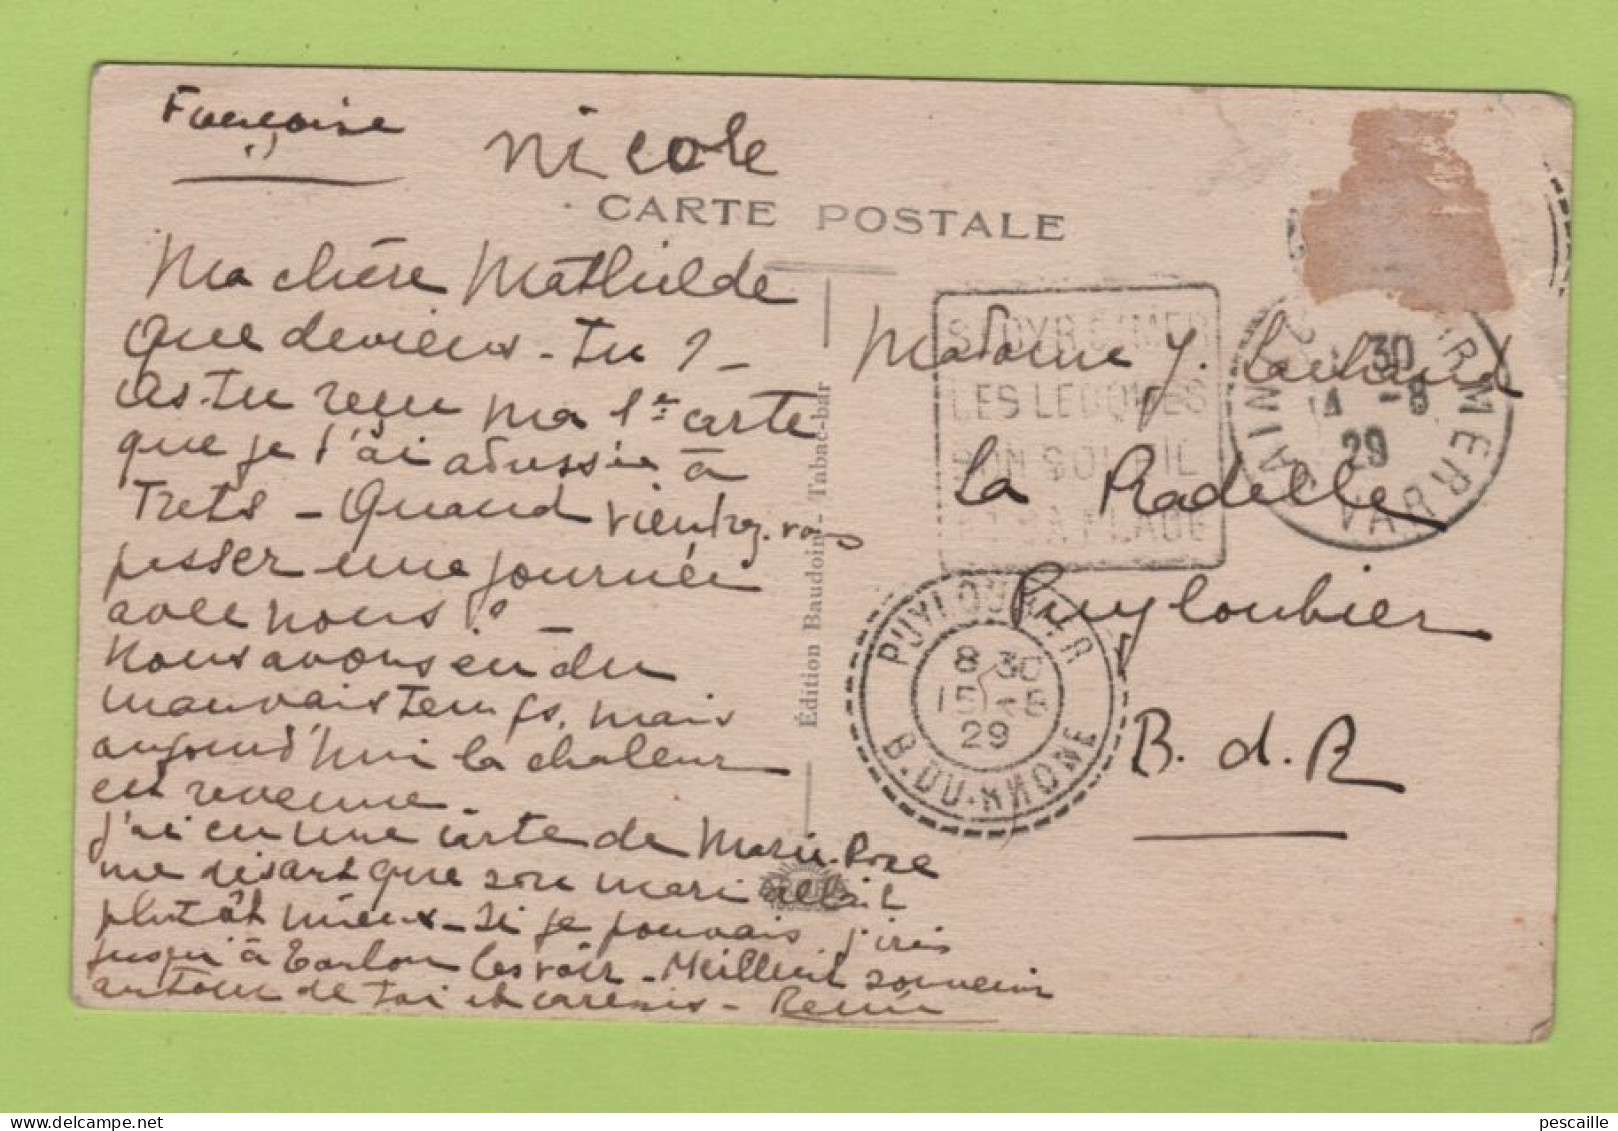 Françoise
Nicole
CARTE POSTALE
Ma chère Mathilde
Que deviens-tu ? -
As-tu reçu ma 1re carte
que je t'ai adressée à
Trets - Quand viendrez-vous
passer une journée
avec nous ?
Nous avons eu du
mauvais temps, mais
aujourd'hui la chaleur
est revenue -
J'ai eu une carte de Marie-Rose
me disant que son mari allait
plutôt mieux - Si je pouvais j'irais
jusqu'à Toulon les voir - Meilleur souvenir
autour de toi et caresses -
Édition Baudoin - Tabac-bar
ST CYR S/MER
LES LECQUES
SON SOLEIL
ET SA PLAGE
30
14 -8
29
VAR
Madame J.
La Pradelle
Puyloubier
B. d. R
PUYLOUBIER
8 30
15 -8
29
B.DU-RHONE
pescaille